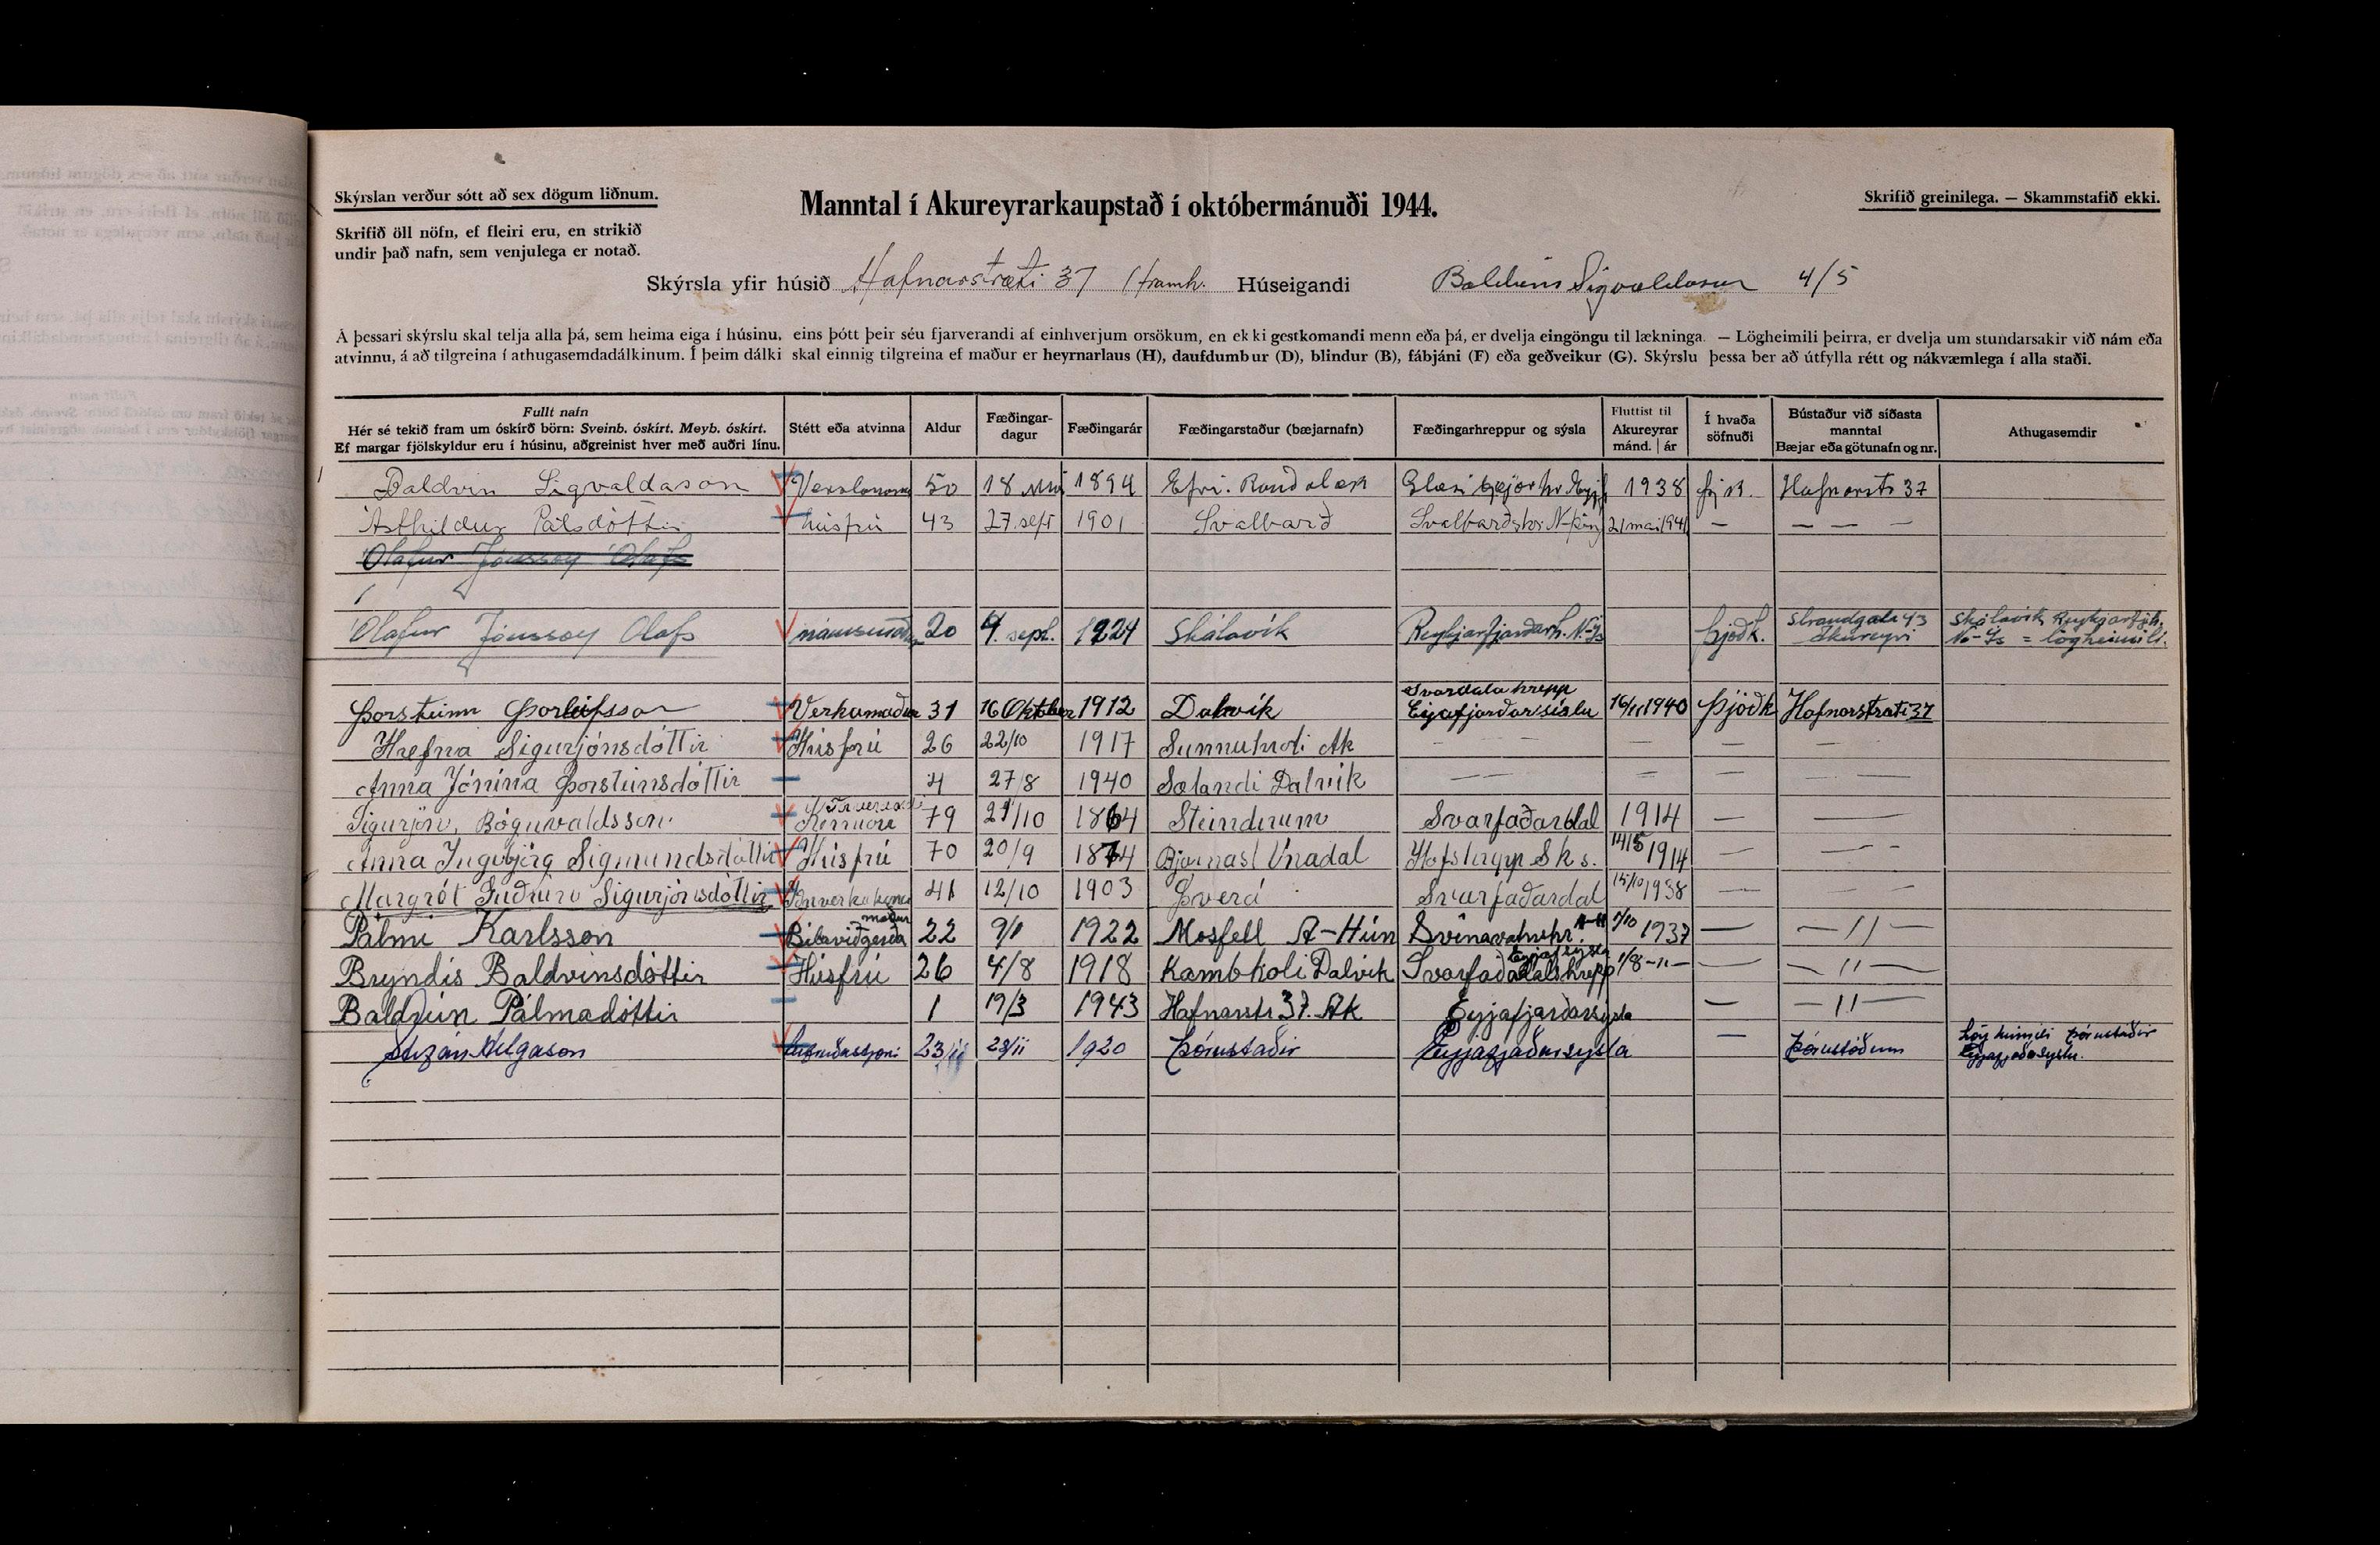 Skýrslan verður sótt að sex dögum liðnum.
Manntal í Akureyrarkaupstað í októbermánuði 1944.
Skrifið greinilega. — Skammstafið ekki.
Skrifið öll nöfn, ef fleiri eru, en strikið
undir það nafn, sem venjulega er notað.
Skýrsla yfir húsið Hafnarstræti 37 (framh. Húseigandi Baldvin Sigvaldason 4/5
Á þessari skýrslu skal telja alla þá, sem heima eiga í húsinu, eins þótt þeir séu fjarverandi af einhverjum orsökum, en ekki gestkomandi menn eða þá, er dvelja eingöngu til lækninga. — Lögheimili þeirra, er dvelja um stundarsakir við nám eða
atvinnu, á að tilgreina í athugasemdadálkinum. Í þeim dálki skal einnig tilgreina ef maður er heyrnarlaus (H), daufdumbur (D), blindur (B), fábjáni (F) eða geðveikur (G). Skýrslu þessa ber að útfylla rétt og nákvæmlega í alla staði.
Fullt nafn
Hér sé tekið fram um óskírð börn: Sveinb. óskírt. Meyb. óskírt.
Ef margar fjölskyldur eru í húsinu, aðgreinist hver með auðri línu.
Stétt eða atvinna
Aldur
Fæðingar-
dagur
Fæðingarár
Fæðingarstaður (bæjarnafn)
Fæðingarhreppur og sýsla
Fluttist til
Akureyrar
mánd. | ár
Í hvaða
söfnuði
Bústaður við síðasta
manntal
Bæjar eða götunafn og nr.
Athugasemdir
Baldvin Sigvaldason 50 18 1894 Efri. 1938 Hafnarstr 37
Ásthildur Pálsdóttir húsfrú 43 27. sept 1901 Svalbarð Svalbarðshr N-Þing 21 mai 1941 — — — —
Ólafur Jónsson Ólafs
Ólafur Jónsson Ólafs námsmaður 20 4. sept. 1924 Skálavík Reykjarfjarðarh. N-Ís þjóðk. Strandgata 43 Akureyri Skálavík Reykjarfjh.
No-Ís = lögheimili.
Þorsteinn Þorleifsson Verkamaður 31 16 Oktober 1912 Dalvík Svardala hrepp
Eyjafjarðarsíslu 16/11 1940 Þjóðk Hafnarstræti 37
Hrefna Sigurjónsdóttir Húsfrú 26 22/10 1917 Sunnuhvoli Ak — — — — — —
Anna Jónína Þorsteinsdóttir 4 27/8 1940 Sælandi Dalvík — — — — —
Sigurjón Rögnvaldsson 79 1864 Steindirum Svarfaðardal 1914 — —
Anna Ingibjörg Sigmundsdóttir Húsfrú 70 20/9 1874 Bjarnast Unadal Hofshrepp Sks. 14/5 1914 — — —
Margrét Guðrún Sigurjónsdóttir 41 12/10 1903 Þverá Svarfaðardal 15/10 1938 — — —
Pálmi Karlsson Bílaviðgerðamaður 22 9/1 1922 Mosfell A-Hún Svínavatnshr. A-H 1/10 1937 — — 11 —
Bryndís Baldvinsdóttir Húsfrú 26 4/8 1918 Kambholi Dalvík Svarfaðadalshrepp Eyjafjsýsla 1/8 -11- — — 11 —
Baldvin Pálmadóttir 1 19/3 1943 Hafnarstr 37. Ak Eyjafjarðarsýsla — — 11 —
Stefán Helgason 23 23/11 1920 Þórustaðir Eyjafjaðarsysla — Þórustöðum Lögheimili Þórustaðir
Eyjafjaðarsyslu.